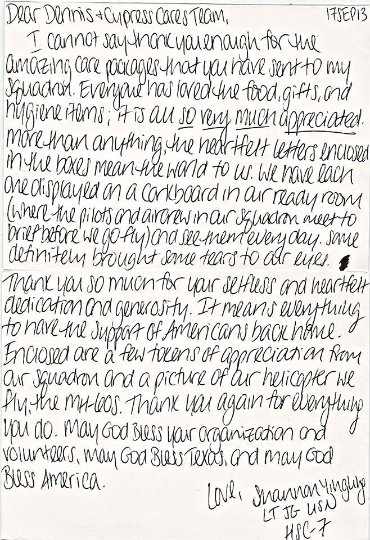 Dear Dennis + Cypress Cares Team, 17SEP13
I cannot say thank you enough for the
amazing care packages that you have sent to my
squadron. Everyone has loved the food, gifts, and
hygiene items; it is all so very much appreciated.
More than anything, the heartfelt letters enclosed
in the boxes mean the world to us. We have each
one displayed on a corkboard in our ready room
(where the pilots and aircrew in our squadron meet to
brief before we go fly) and see them every day. Some
definitely brought some tears to our eyes.
Thank you so much for your selfless and heartfelt
dedication and generosity. It means everything
to have the support of Americans back home.
Enclosed are a few tokens of appreciation from
our squadron and a picture of our helicopter we
fly, the MH-60S. Thank you again for everything
you do. May God Bless your organization and
volunteers, may God Bless Texas, and may God
Bless America.
Love, Shannon Yingling
LT JG USN
HSC-7